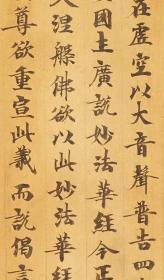 在虛空以大音聲普告四
國土廣說妙法華經今正
入涅槃佛欲以此妙法華經
尊欲重宣此義而說偈言